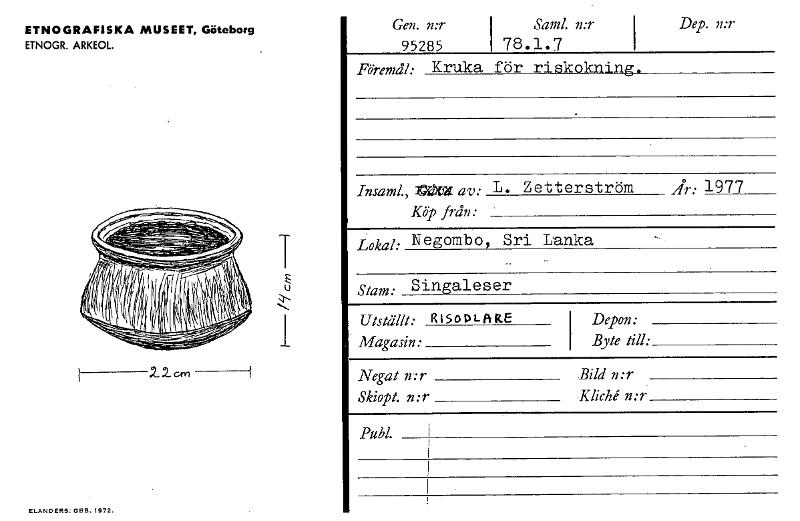 ETNOGRAFISKA MUSEET, Göteborg
ETNOGR. ARKEOL.
Gen. n:r Saml. n:r Dep. n:r
95285 78.1.7
Föremål: Kruka för riskokning.
Insaml., av: L. Zetterström År: 1977
Köp från:
Lokal: Negombo, Sri Lanka
Stam: Singaleser
Utställt: RISODLARE Depon:
Magasin: Byte till:
Negat n:r Bild n:r
Skiopt. n:r Kliché n:r
Publ.
14 cm
22 cm
ELANDERS, GBB, 1972.